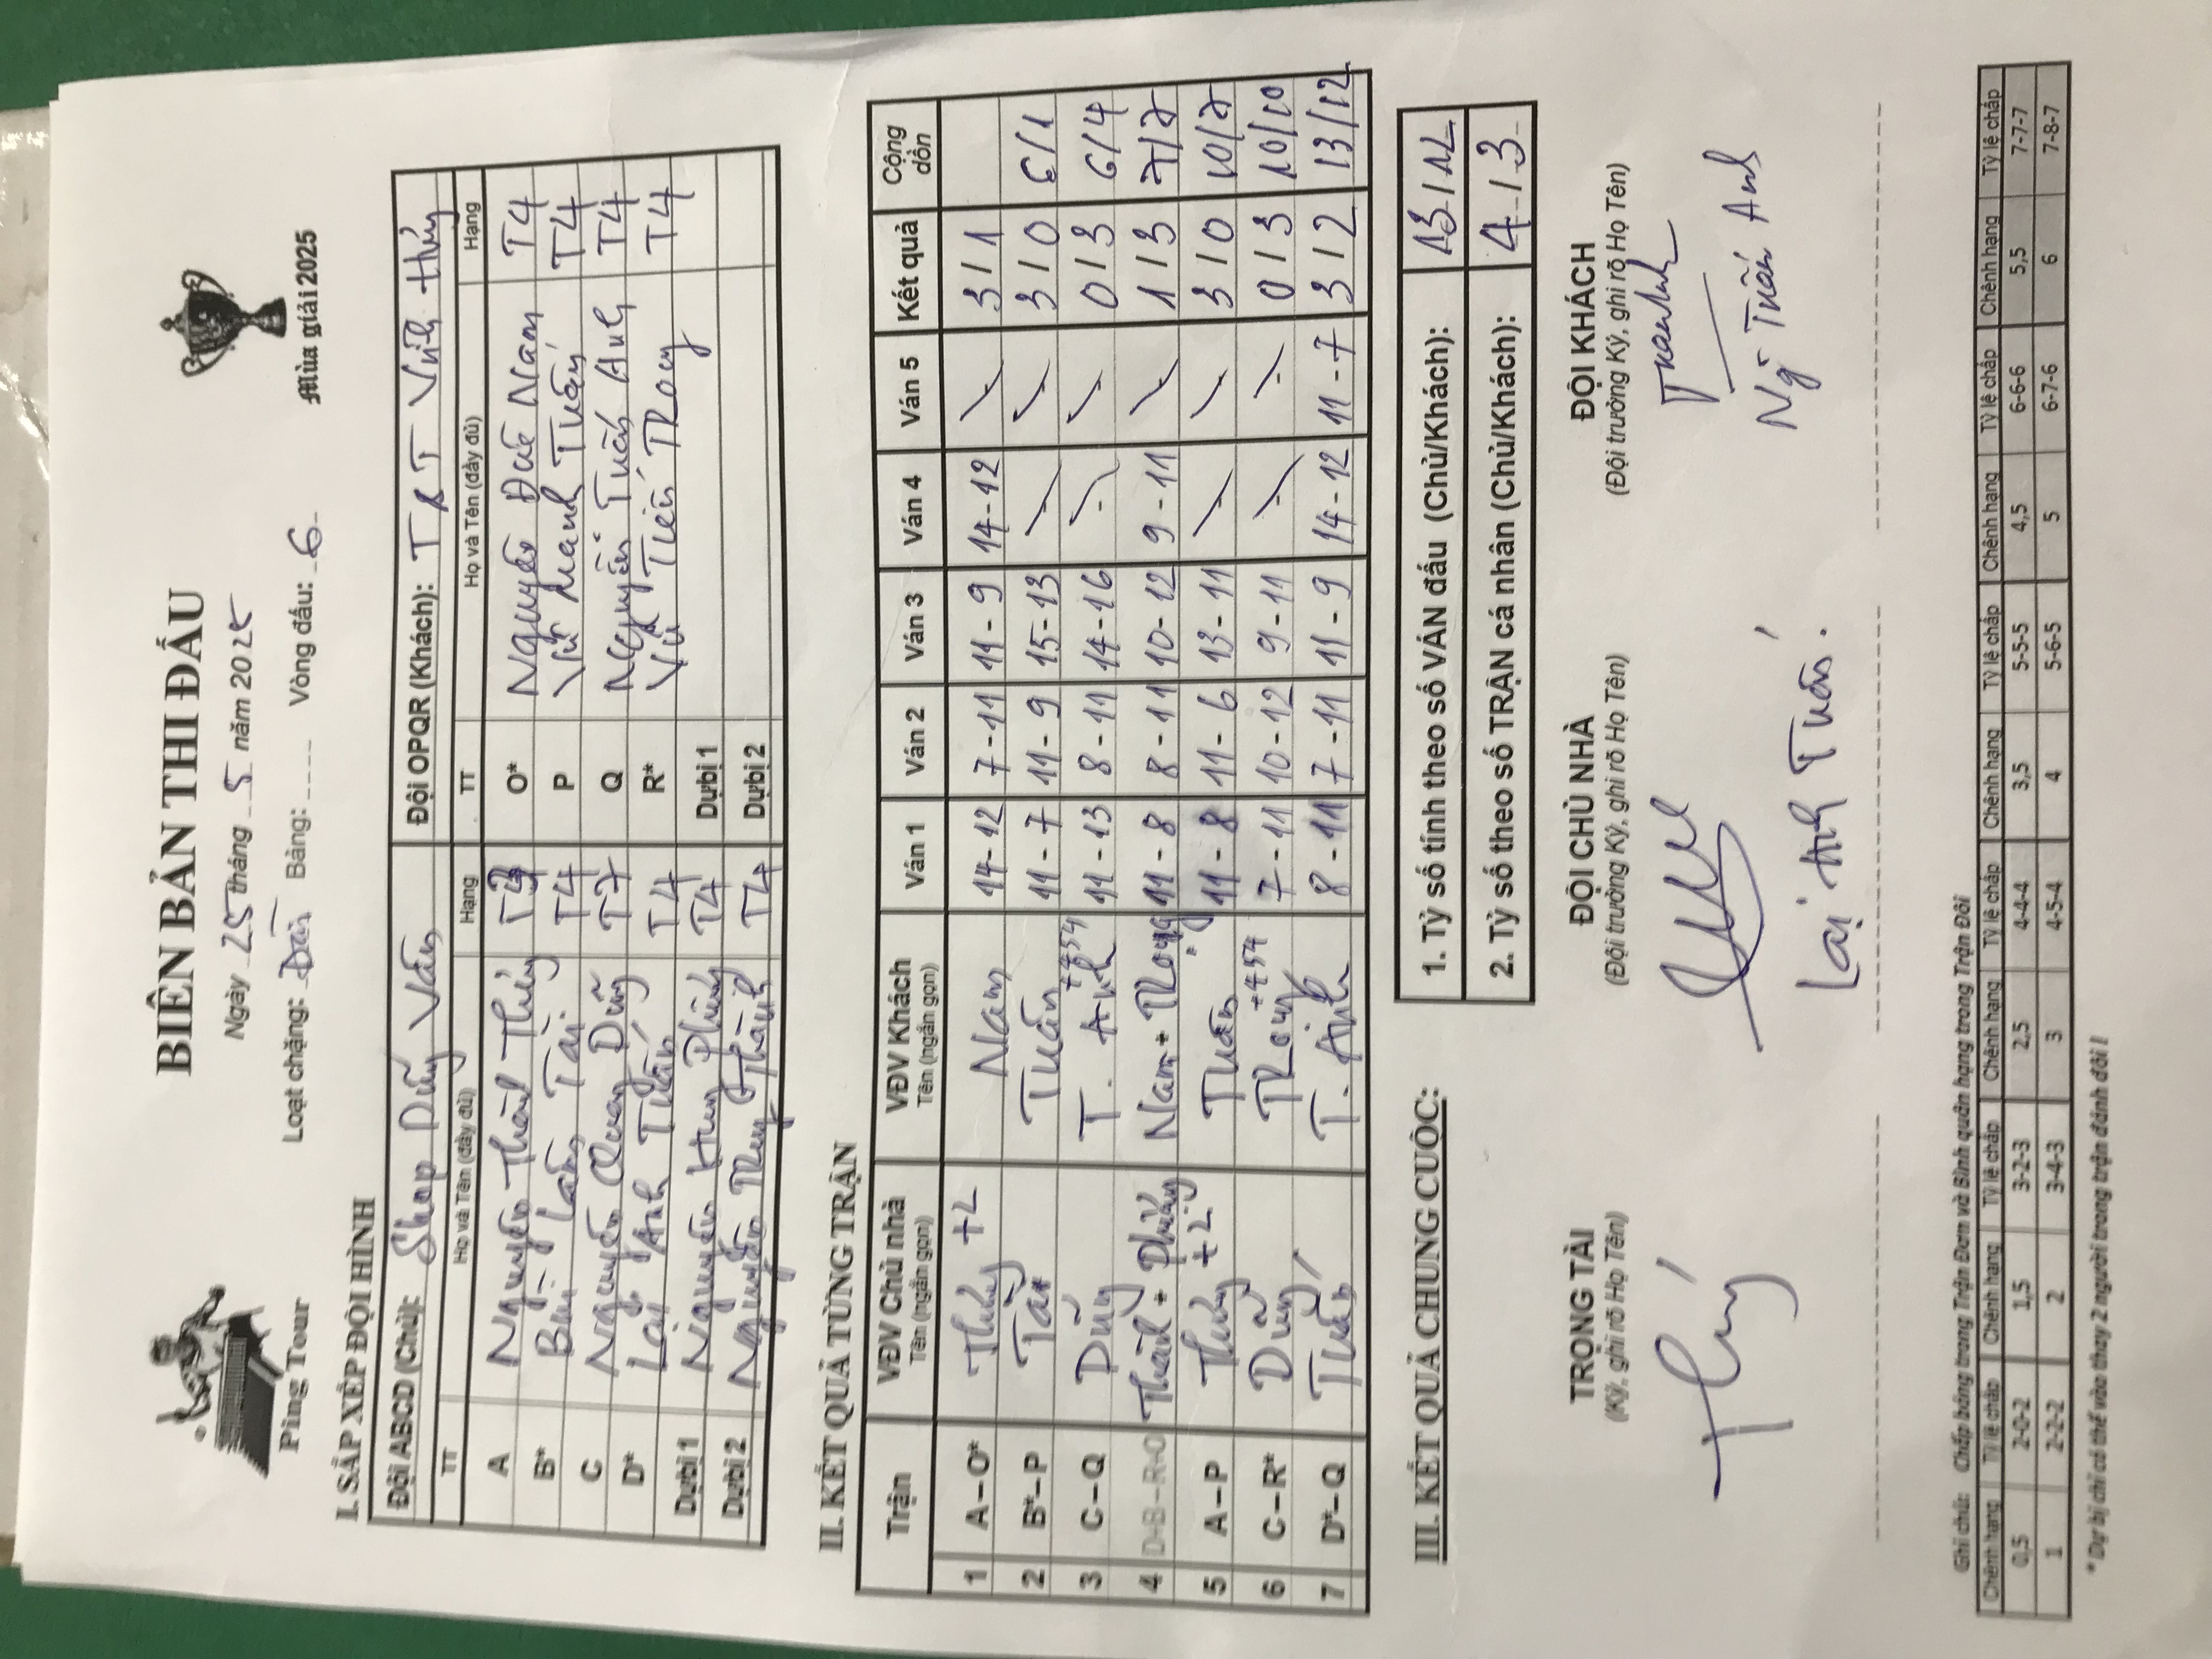 Ping Tour
BIÊN BẢN THI ĐẤU
Mùa giải 2025
Ngày 25 tháng 5 năm 2025
Loạt chặng: Bảng: Vòng đấu: 6
I. SẮP XẾP ĐỘI HÌNH
Đội ABCD (Chủ): Shop Dũng Vân Đội OPQR (Khách): T&T Vĩnh Thúy
TT Họ và Tên (đầy đủ) Hạng TT Họ và Tên (đầy đủ) Hạng
A Nguyễn Thành Thủy O* Nguyễn Đức Nam T4
B* Bùi Tài T4 P Vũ Mạnh Tuấn T4
C Nguyễn Quang Dũng T7 Q Nguyễn Tuấn Anh T4
D* Lại Anh Tuấn T4 R* Vũ Tiến T4
Dự bị 1 Nguyễn T4 Dự bị 1
Dự bị 2 Nguyễn Thành T4 Dự bị 2
II. KẾT QUẢ TỪNG TRẬN
Trận VĐV Chủ nhà Tên (ngắn gọn) VĐV Khách Tên (ngắn gọn) Ván 1 Ván 2 Ván 3 Ván 4 Ván 5 Kết quả Cộng dồn
1 A–O* Thủy +2 Nam 14-12 7-11 11-9 14-12 3/1
2 B*–P Tài Tuấn 11-7 11-9 15-13 3/0 6/1
3 C–Q Dũng T. Anh +454 11-13 8-11 14-16 0/3 6/4
4 D+B–R+O Thành + Nam + 11-8 8-11 10-12 9-11 1/3 7/7
5 A–P Thủy +2 Tuấn 11-8 11-6 13-11 3/0 10/7
6 C–R* Dũng +454 7-11 10-12 9-11 0/3 10/10
7 D*–Q Tuấn T. Anh 8-11 7-11 11-9 14-12 11-7 3/2 13/12
III. KẾT QUẢ CHUNG CUỘC:
1. Tỷ số tính theo số VÁN đấu (Chủ/Khách): 13/12
2. Tỷ số theo số TRẬN cá nhân (Chủ/Khách): 4/3
TRỌNG TÀI ĐỘI CHỦ NHÀ ĐỘI KHÁCH
(Ký, ghi rõ Họ Tên) (Đội trưởng Ký, ghi rõ Họ Tên) (Đội trưởng Ký, ghi rõ Họ Tên)
Lại Anh Tuấn Ng Tuấn Anh
Ghi chú: Chấp bóng trong Trận Đơn và Bình quân hạng trong Trận Đôi
Chênh hạng Tỷ lệ chấp Chênh hạng Tỷ lệ chấp Chênh hạng Tỷ lệ chấp Chênh hạng Tỷ lệ chấp Chênh hạng Tỷ lệ chấp Chênh hạng Tỷ lệ chấp Chênh hạng Tỷ lệ chấp
0,5 2-0-2 1,5 3-2-3 2,5 4-4-4 3,5 5-5-5 4,5 6-6-6 5,5 7-7-7
1 2-2-2 2 3-4-3 3 4-5-4 4 5-6-5 5 6-7-6 6 7-8-7
* Dự bị chỉ có thể vào thay 2 người trong trận đánh đôi !